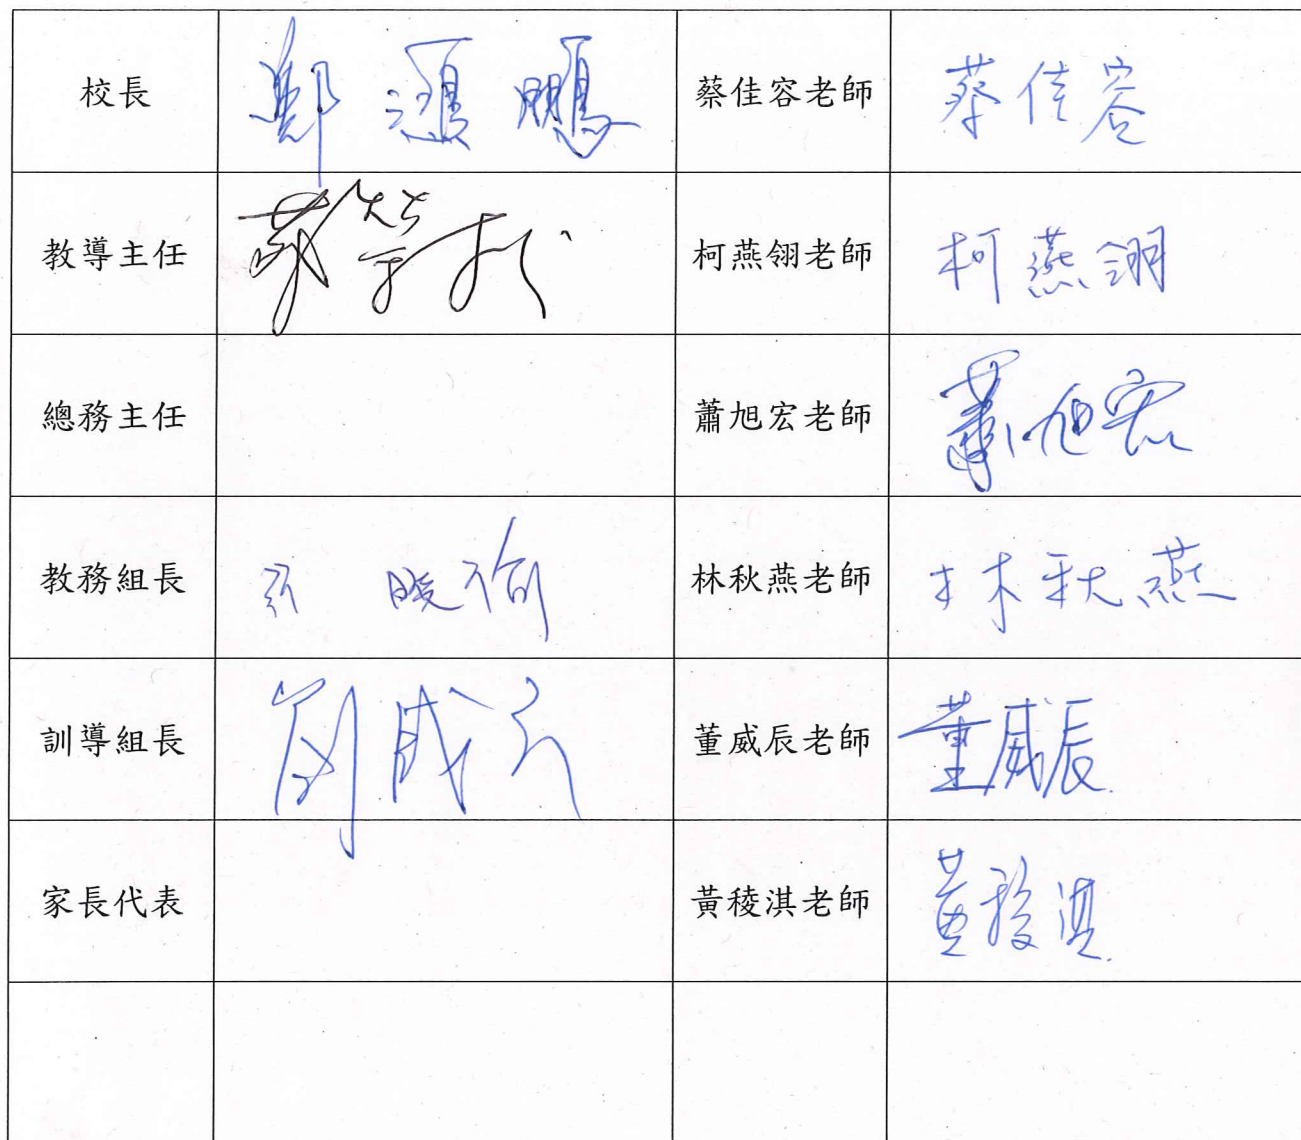 校長 鄭 鴻鵬 蔡佳容老師 蔡佳容
教導主任 蔡 柯燕翎老師 柯燕翎
總務主任 蕭旭宏老師 蕭旭宏
教務組長 曉 林秋燕老師 林秋燕
訓導組長 劉成 董威辰老師 董威辰
家長代表 黃稜淇老師 黃稜淇